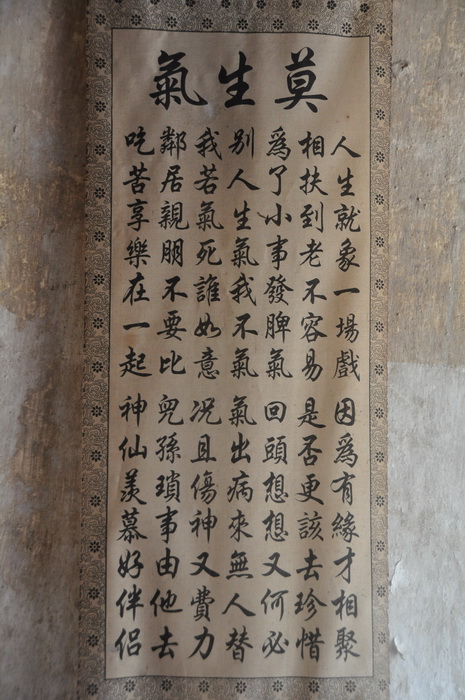 莫生氣
人生就象一場戲因爲有緣才相聚
相扶到老不容易是否更該去珍惜
爲了小事發脾氣回頭想想又何必
别人生氣我不氣氣出病來無人替
我若氣死誰如意况且傷神又費力
鄰居親朋不要比兒孫瑣事由他去
吃苦享樂在一起神仙羨慕好伴侣